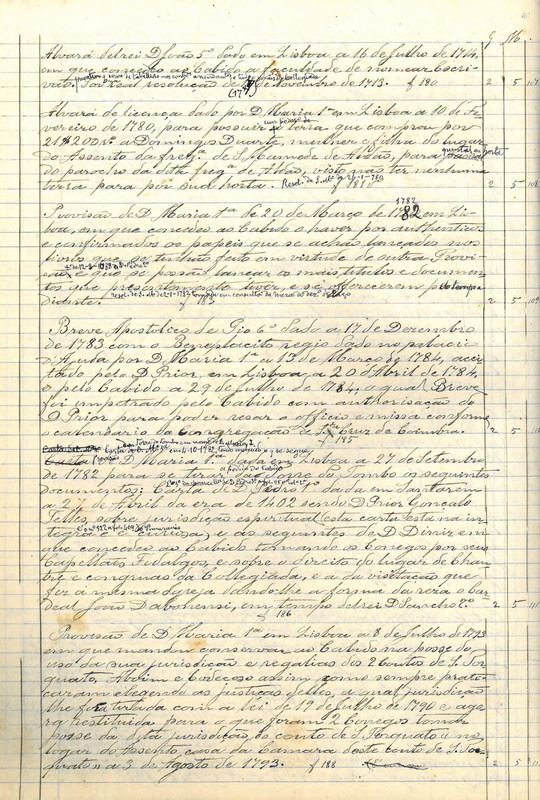 g M.
Alvará delrei D. João 5º dado em Lisboa a 16 de Julho de 1744,
em que concedeo ao Cabido a faculdade de nomear Escri-
vão. Por real resolução de de Novembro de 1743. f 180 2 5 107
Alvará de licença dado por D. Maria 1ª em Lisboa a 10 de Fe-
vereiro de 1780, para possuir a terra que comprou por
21$200 rs a Domingos Duarte, mulher e filha do lugar
do Assento da fregª de S. Mamede de Aldão, para
do parocho da dita fregª de Aldão, visto não ter nenhuma
terra para pôr sua horta. 2 5 108
1782
Provisão de D. Maria 1ª de 20 de Março de 1782 em Lis-
boa, em que concedeo ao Cabido o haver por authenticos
e confirmados os papeis que se achão lançados nos
livros que se tenhão feito em virtude de outra Provi-
são, e que se possão lançar os mais titulos e documen-
tos que presentemente tiver, e se offerecerem pelo tempo
diante. f 183 2 5 109
Breve Apostolico de Pio 6º dado a 17 de Dezembro
de 1783 com o Beneplacito regio dado no palacio
d'Ajuda por D. Maria 1ª a 13 de Março de 1784, acei-
tado pelo D. Prior, em Lisboa, a 20 d'Abril de 1784,
e pelo Cabido a 29 de Julho de 1784, o qual Breve
foi impetrado pelo Cabido com authorisação do
D. Prior para poder resar o officio e missa conforme
o calendario da Congregação de Stª Cruz de Coimbra. 2 5 110
185
Carta de D. Maria 1ª dada em Lisboa a 27 de Setembro
de 1782 para se tirar da Torre do Tombo os seguintes
documentos: Carta de D. Pedro 1º dada em Santarem
a 2 de Abril da era de 1402 sendo D. Prior Gonçalo
Telles, sobre jurisdição espiritual (esta carta está na in-
tegra e é curiosa), e as seguintes de D. Diniz em
que concedeo ao Cabido tomando os Conegos por seus
Capellães Fidalgos, e sobre o direito do lugar de Chan-
tre e congruas da Collegiada, e a da visitação que
fez á mesma Igreja dando-lhe a forma da resa o Car-
deal João D'abonensi, em tempo delrei D. Sancho 2º. 2 5 111
f 186
Provisão de D. Maria 1ª em Lisboa a 8 de Julho de 1793
em que mandou conservar ao Cabido na posse do
uso da sua jurisdição e regalias dos 2 Coutos de S. Tor-
quato, Aboim e Codeçoso assim como sempre prati-
caram elegendo as justiças delles, a qual jurisdição
lhe fora tirada com a lei de 19 de Julho de 1790 e ago-
ra restituida para o que foram 2 Conegos tomar
posse da dita jurisdição, ao couto de S. Torquato, no
logar do Assento, casa da Camara deste couto de S. Tor-
quato, a 3 de Agosto de 1793. f 188 2 5